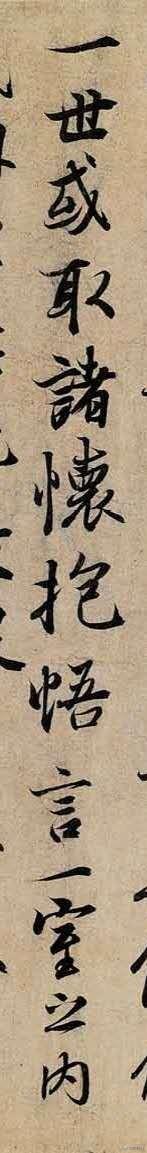 一世或取諸懷抱悟言一室之内